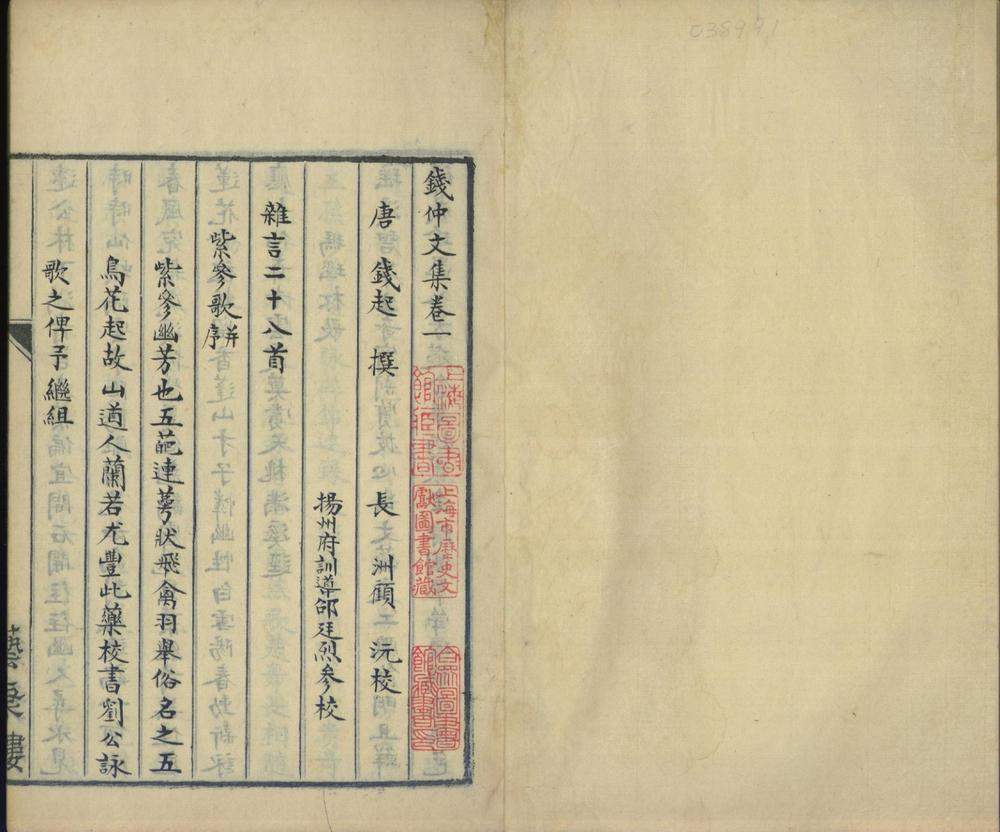 錢仲文集卷一
唐 錢起 撰 長洲顧 沅校
揚州府訓導邵廷烈參校
雜言二十八首
紫參歌并序
紫參幽芳也五葩連萼狀飛禽羽舉俗名之五
鳥花起故山道人蘭若尤豐此藥校書劉公詠
歌之俾予繼組
上海圖書館藏書
上海市歷史文獻圖書館藏
合眾圖書館藏書印
038991